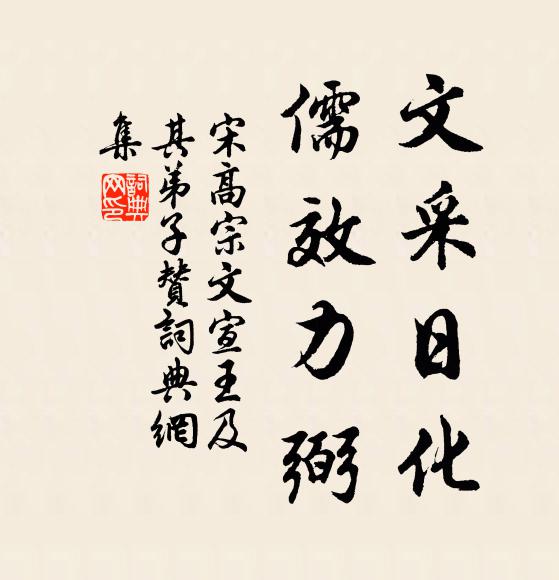 文采日化
儒效力弼
宋高宗文宣王及
其弟子贊詞典網
集
詞典
网印